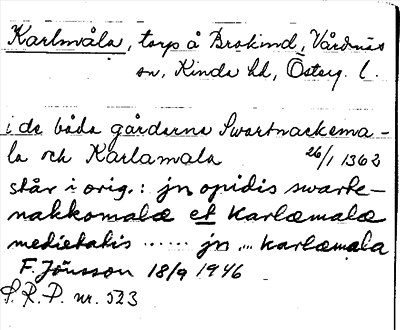 Karlmåla, torp å Brokind, Vårdnäs
sn, Kinda hd, Österg. l.
i de båda gårdarna Swartnackema-
la och Karlamala 26/1 1362
står i orig.: jn opidis swarte-
nakkomalæ et Karlæmalæ
medietatis ...... jn ... karlæmala
F. Jönsson 18/9 1946
S. R. P. nr. 523